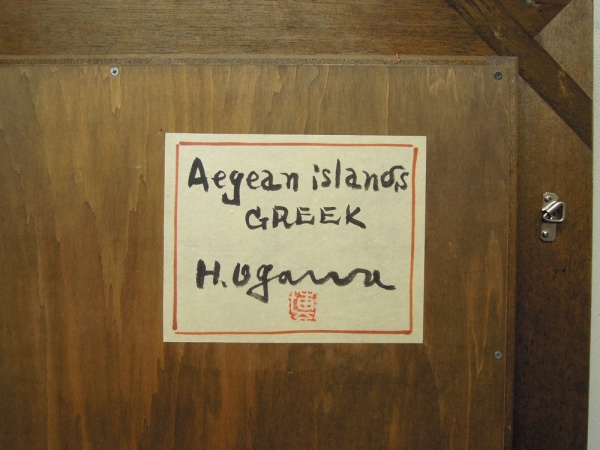 Aegean islands
GREEK
H. Ogawa